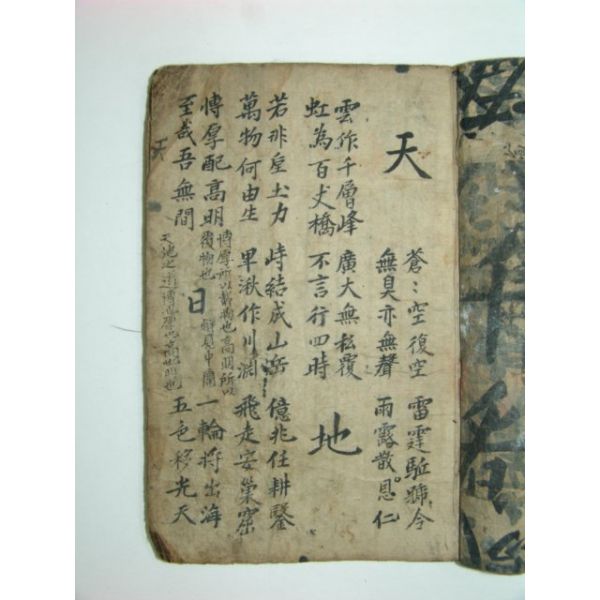 天
蒼〻空復空 雷霆馳號令
無臭亦無聲 雨露散恩仁
雲作千層峰 廣大無私覆
虹為百丈橋 不言行四時
地
若非皇土力 峙結成山岳 億兆任耕鑿
萬物何由生 卑湫作川淵 飛走安巢窟
博厚配高明
至哉吾無間
博厚所以載物也高明所以
覆物也 見中庸
天地之道博也厚也高也明也
日
一輪將出海
五色移光天